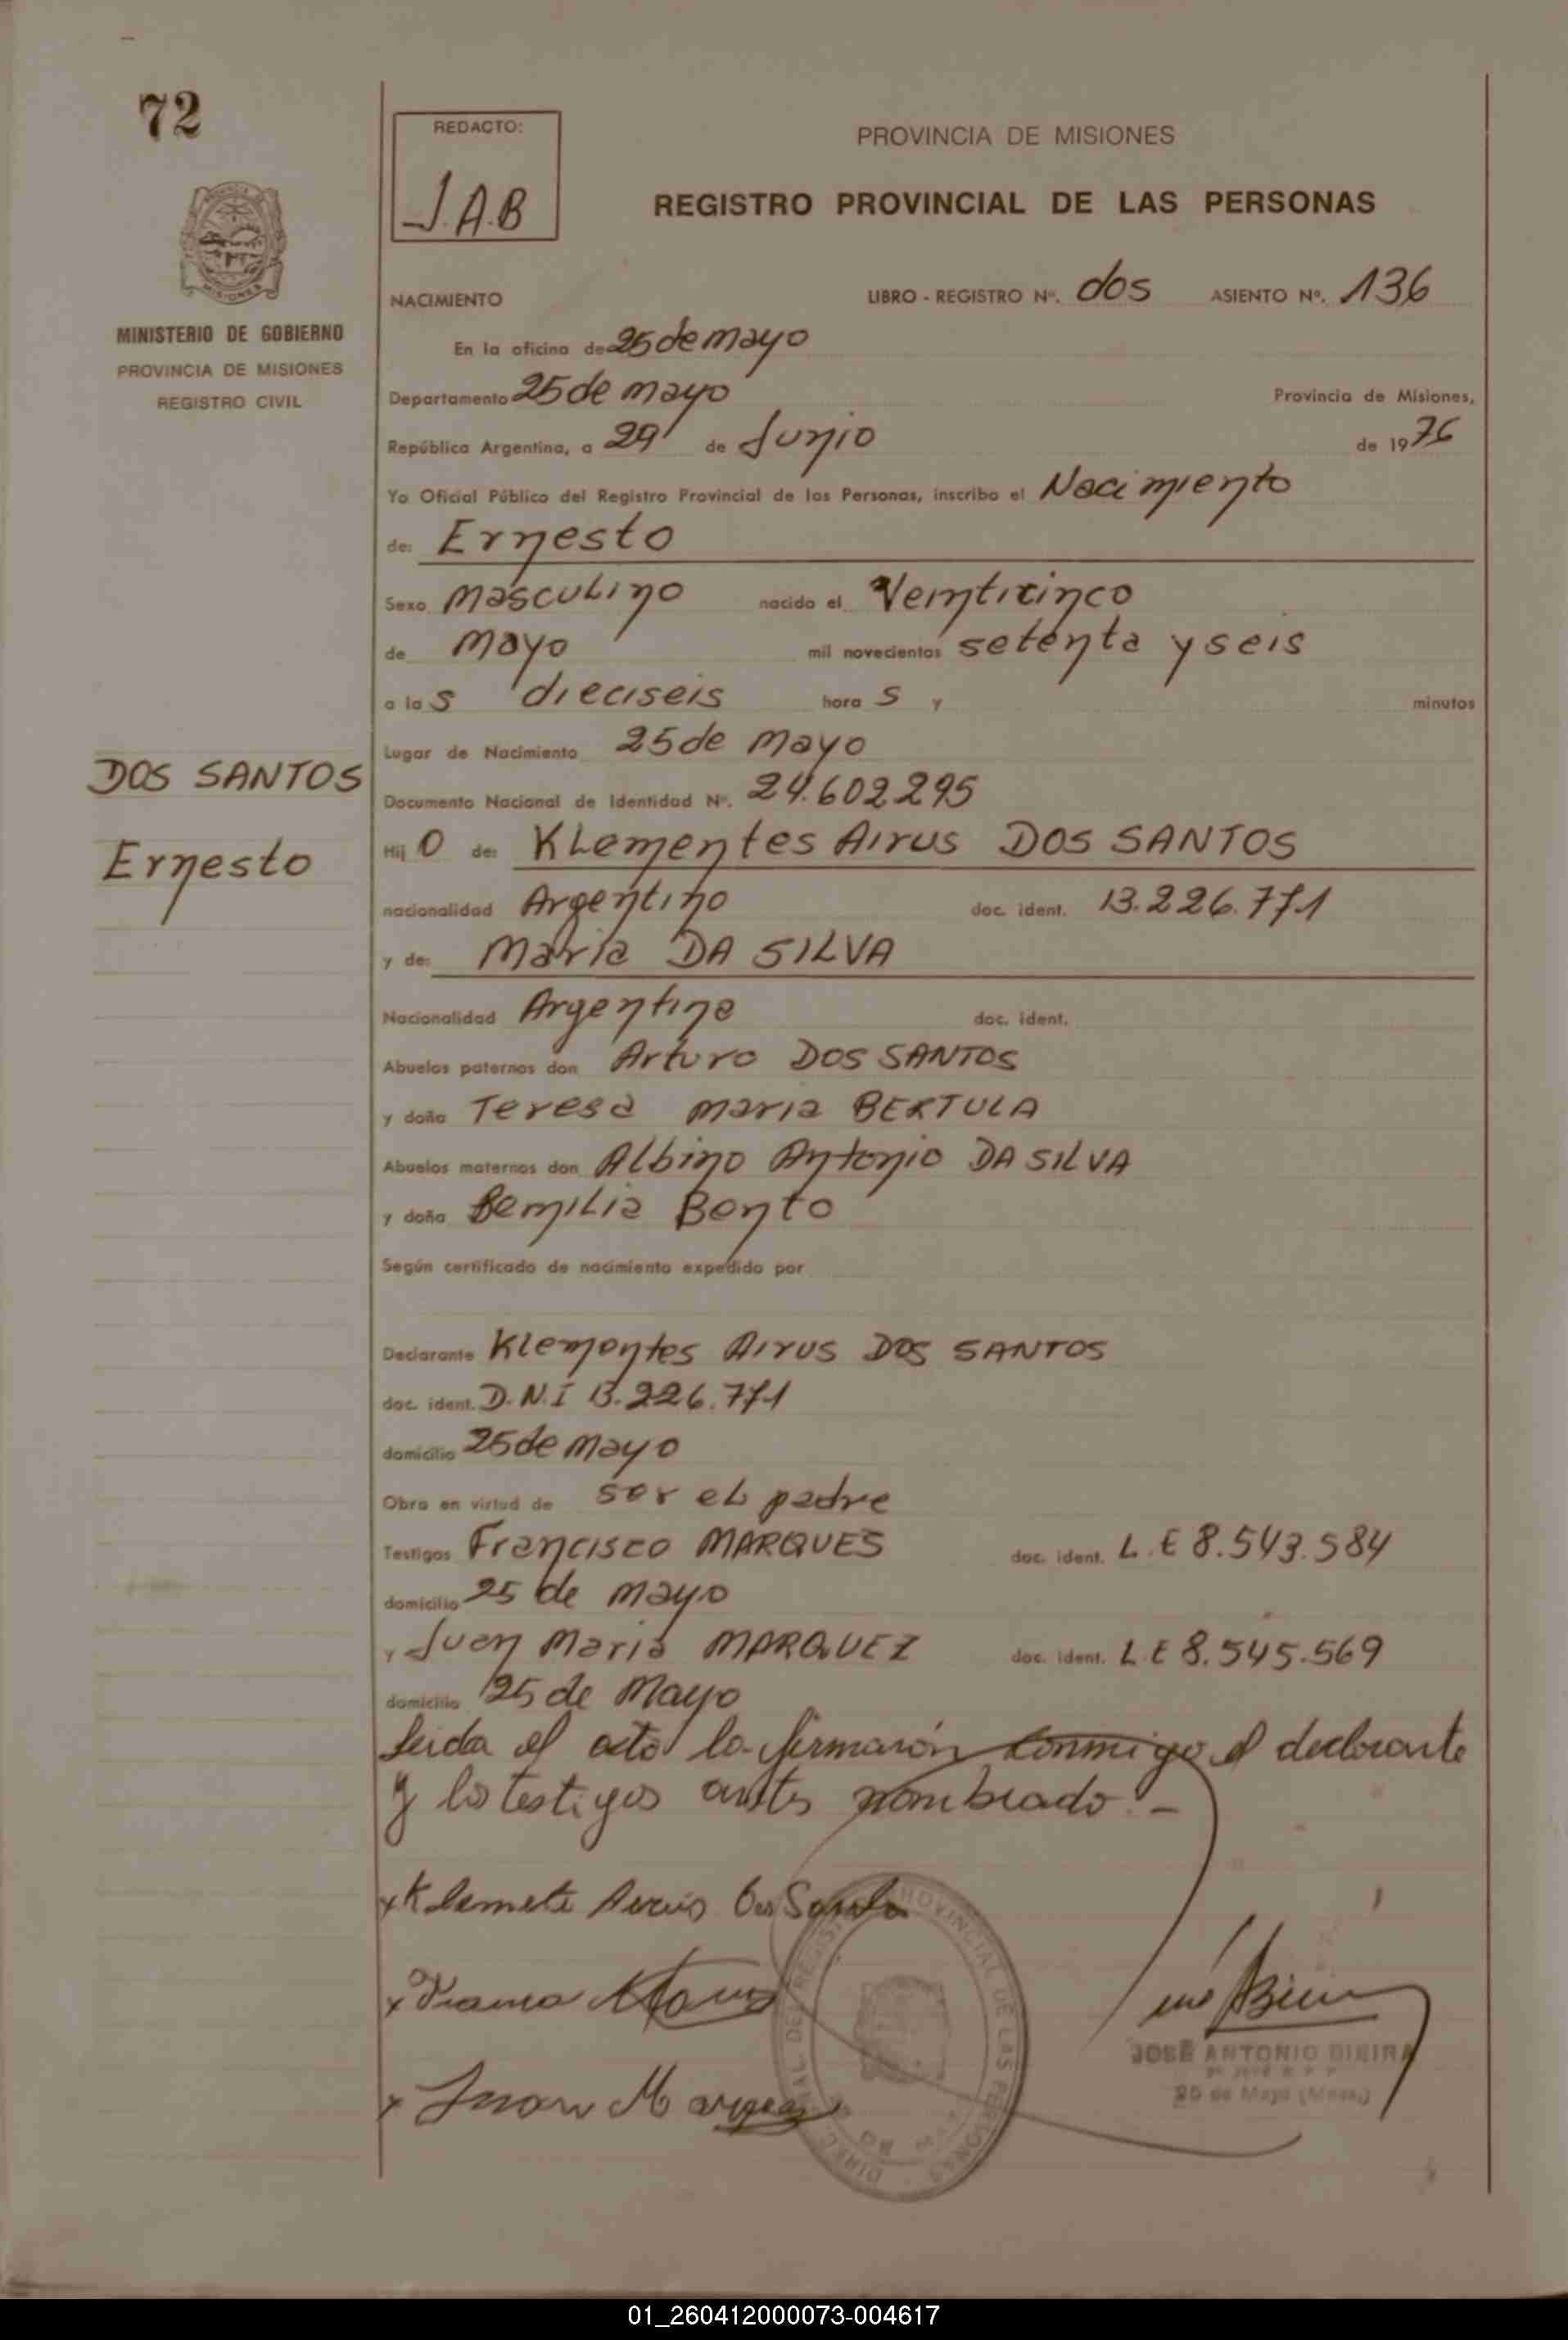 72
REDACTO:
J.A.B
PROVINCIA DE MISIONES
REGISTRO PROVINCIAL DE LAS PERSONAS
MINISTERIO DE GOBIERNO
PROVINCIA DE MISIONES
REGISTRO CIVIL
NACIMIENTO LIBRO - REGISTRO Nº. dos ASIENTO Nº. 136
En la oficina de 25 de mayo
Departamento 25 de mayo Provincia de Misiones,
República Argentina, a 29 de Junio de 1976
Yo Oficial Público del Registro Provincial de las Personas, inscribo el Nacimiento
de: Ernesto
Sexo masculino nacido el Veinticinco
de mayo mil novecientos setenta y seis
a las dieciseis horas y minutos
Lugar de Nacimiento 25 de mayo
DOS SANTOS
Ernesto
Documento Nacional de Identidad Nº. 24.602295
Hijo de: Klementes Airus DOS SANTOS
nacionalidad Argentino doc. ident. 13.226.771
y de: Maria DA SILVA
Nacionalidad Argentina doc. ident.
Abuelos paternos don Arturo DOS SANTOS
y doña Teresa maria BERTULA
Abuelos maternos don Albino Antonio DA SILVA
y doña Bemilia Bento
Según certificado de nacimiento expedido por
Declarante Klementes Airus DOS SANTOS
doc. ident. D.N.I 13.226.771
domicilio 25 de mayo
Obra en virtud de ser el padre
Testigos Francisco MARQUES doc. ident. L.E 8.543.584
domicilio 25 de mayo
y Juan Maria MARQUEZ doc. ident. L.E 8.545.569
domicilio 25 de Mayo
Leida el acta la firmarón conmigo el declarante
y los testigos antes nombrado.-
x Klemete Airus Dos Santo
x
x Juan Marquez
DIREC. GRAL. DEL REGISTRO PROVINCIAL DE LAS PERSONAS
JOSÉ ANTONIO
25 de Mayo (Mnes.)
01_260412000073-004617